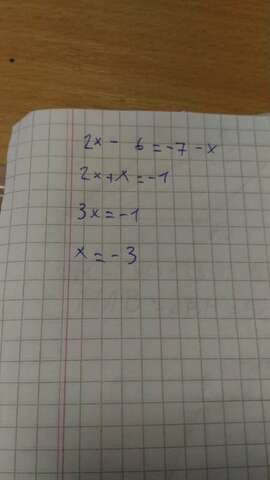 2x - 6 = -7 - x
2x + x = -1
3x = -1
x = -3